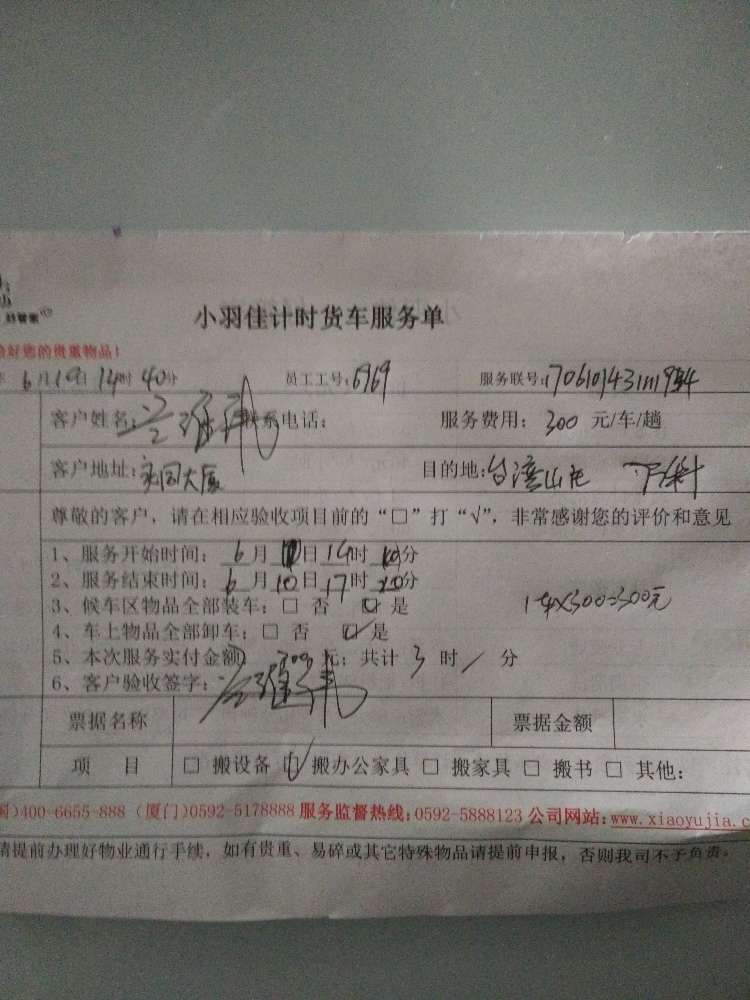 小羽佳计时货车服务单
好您的贵重物品！
6月10日 14时 40分 员工工号: 6969 服务联号:
客户姓名: 联系电话: 服务费用: 300 元/车/趟
客户地址: 大厦 目的地: 台湾山庄
尊敬的客户，请在相应验收项目前的“□”打“√”，非常感谢您的评价和意见
1、服务开始时间: 6月10日14时 分
2、服务结束时间: 6月10日17时 分
3、候车区物品全部装车: □ 否 ☑ 是
4、车上物品全部卸车: □ 否 ☑ 是
1车×300=300元
5、本次服务实付金额 300 元; 共计 3 时 / 分
6、客户验收签字:
票据名称 票据金额
项 目 □ 搬设备 ☑ 搬办公家具 □ 搬家具 □ 搬书 □ 其他:
国)400-6655-888 (厦门)0592-5178888 服务监督热线:0592-5888123 公司网站:www.xiaoyujia.c
请提前办理好物业通行手续，如有贵重、易碎或其它特殊物品请提前申报，否则我司不予负责。